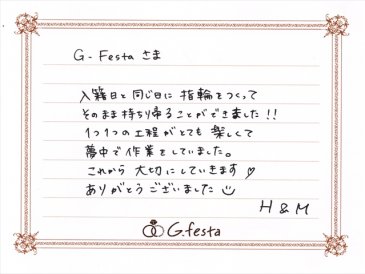 G-Festa さま
入籍日と同じ日に 指輪をつくって
そのまま持ち帰ることができました!!
1つ1つの工程がとても 楽しくて
夢中で作業をしていました。
これから 大切にしていきます♡
ありがとうございました
H & M
G.festa